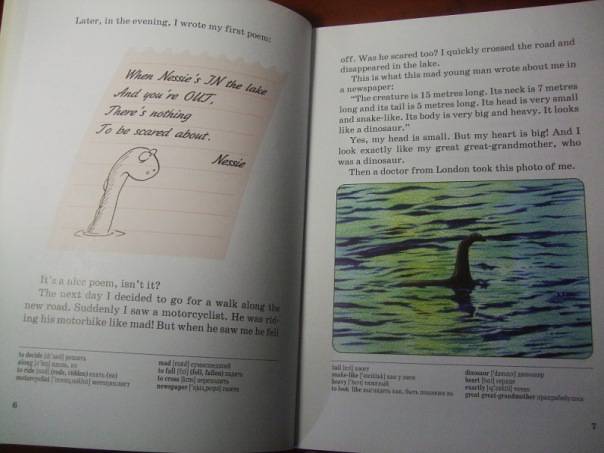 Later, in the evening, I wrote my first poem:
When Nessie's IN the lake
And you're OUT,
There's nothing
To be scared about.
Nessie
It's a nice poem, isn't it?
The next day I decided to go for a walk along the
new road. Suddenly I saw a motorcyclist. He was rid-
ing his motorbike like mad! But when he saw me he fell
to decide решать
along
to ride (rode, ridden) ехать
motorcyclist мотоциклист
mad сумасшедший
to fall (fell, fallen) падать
to cross переходить
newspaper газета
6
off. Was he scared too? I quickly crossed the road and
disappeared in the lake.
This is what this mad young man wrote about me in
a newspaper:
"The creature is 15 metres long. Its neck is 7 metres
long and its tail is 5 metres long. Its head is very small
and snake-like. Its body is very big and heavy. It looks
like a dinosaur."
Yes, my head is small. But my heart is big! And I
look exactly like my great great-grandmother, who
was a dinosaur.
Then a doctor from London took this photo of me.
tail хвост
snake-like как у змеи
heavy тяжелый
to look like выглядеть как, быть похожим на
dinosaur динозавр
heart сердце
exactly точно
great great-grandmother прапрабабушка
7